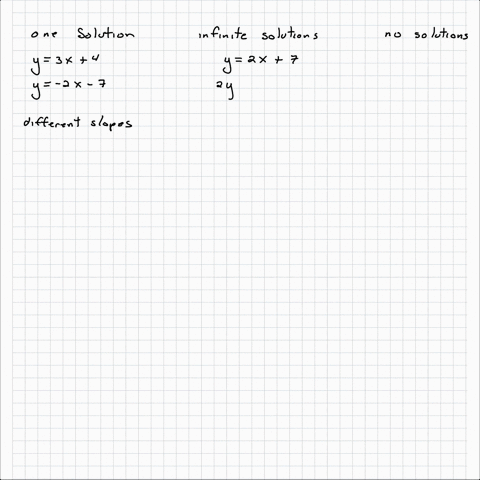 one Solution infinite solutions no solutions
y = 3x + 4 y = 2x + 7
y = -2x - 7 2y
different slopes